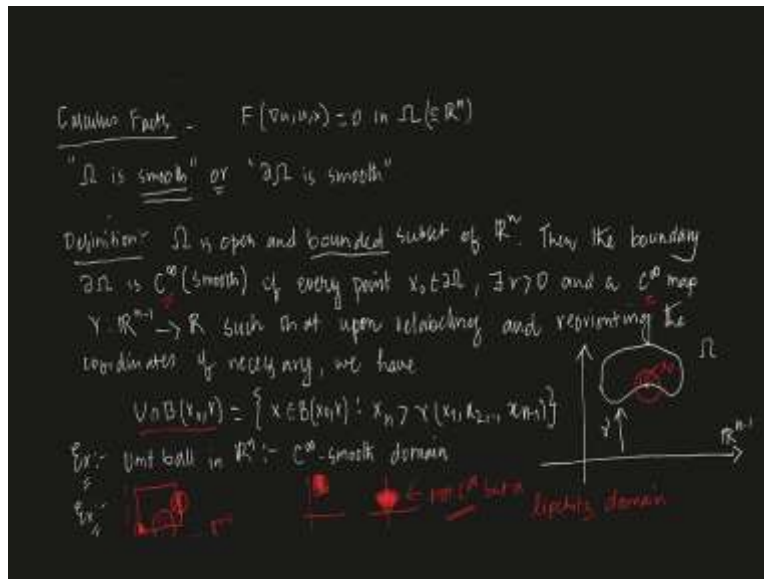 Calculus Facts - F(∇u,u,x)=0 in Ω(⊆ℝⁿ)
"Ω is smooth" or "∂Ω is smooth"
Definition:- Ω is open and bounded subset of ℝⁿ. Then the boundary
∂Ω is C^∞ (smooth) if every point x₀∈∂Ω, ∃ r>0 and a C^∞ map
γ: ℝⁿ⁻¹ → ℝ such that upon relabeling and reorienting the
coordinates if necessary, we have
U∩B(x₀,r) = { x∈B(x₀,r) : xₙ > γ(x₁,x₂..., xₙ₋₁)}
Ω
γ
ℝⁿ⁻¹
Ex:- Unit ball in ℝⁿ :- C^∞-smooth domain
Ex:-
← not C^∞ but a lipchitz domain